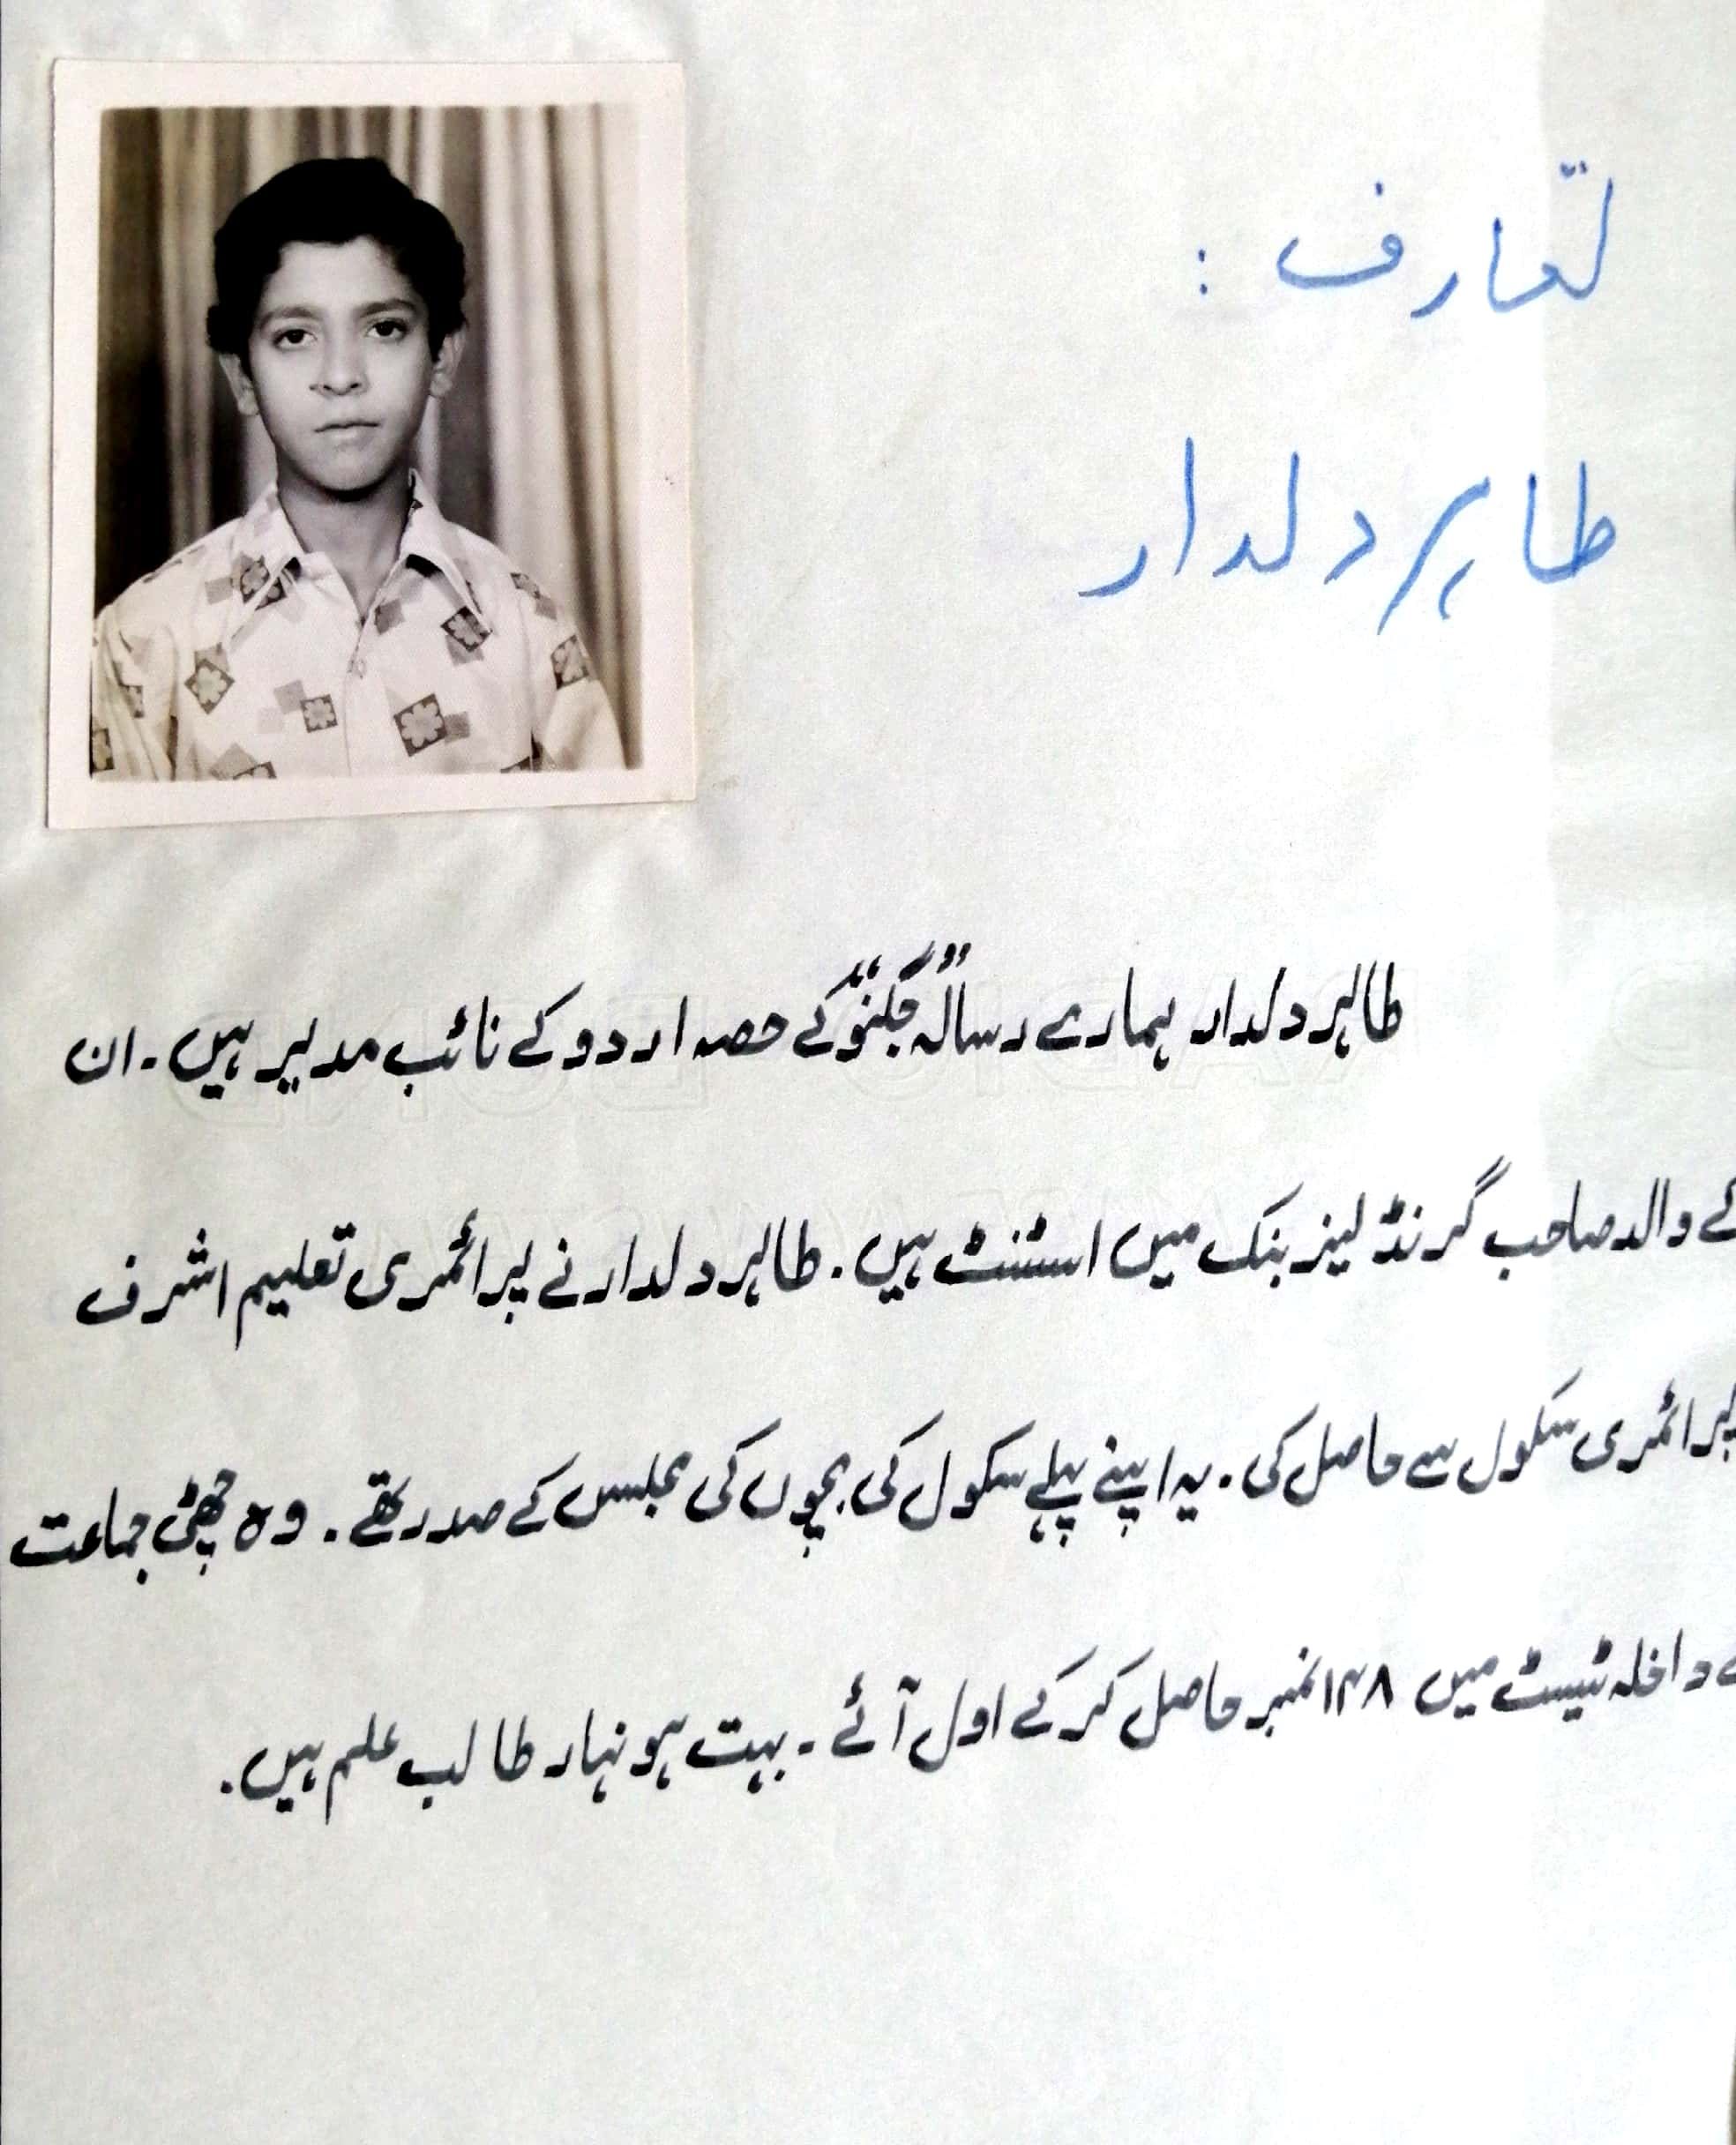 تعارف :
طاہر دلدار
طاہر دلدار ہمارے رسالہ "جگنو" کے حصہ اردو کے نائب مدیر ہیں۔ ان
کے والد صاحب گرنڈلیز بنک میں اسٹنٹ ہیں۔ طاہر دلدار نے پرائمری تعلیم اشرف
پرائمری سکول سے حاصل کی۔ یہ اپنے پہلے سکول کی بچوں کی مجلس کے صدر تھے۔ وہ چھٹی جماعت
کے داخلہ ٹیسٹ میں ۱۴۸ نمبر حاصل کر کے اول آئے۔ بہت ہونہار طالب علم ہیں۔